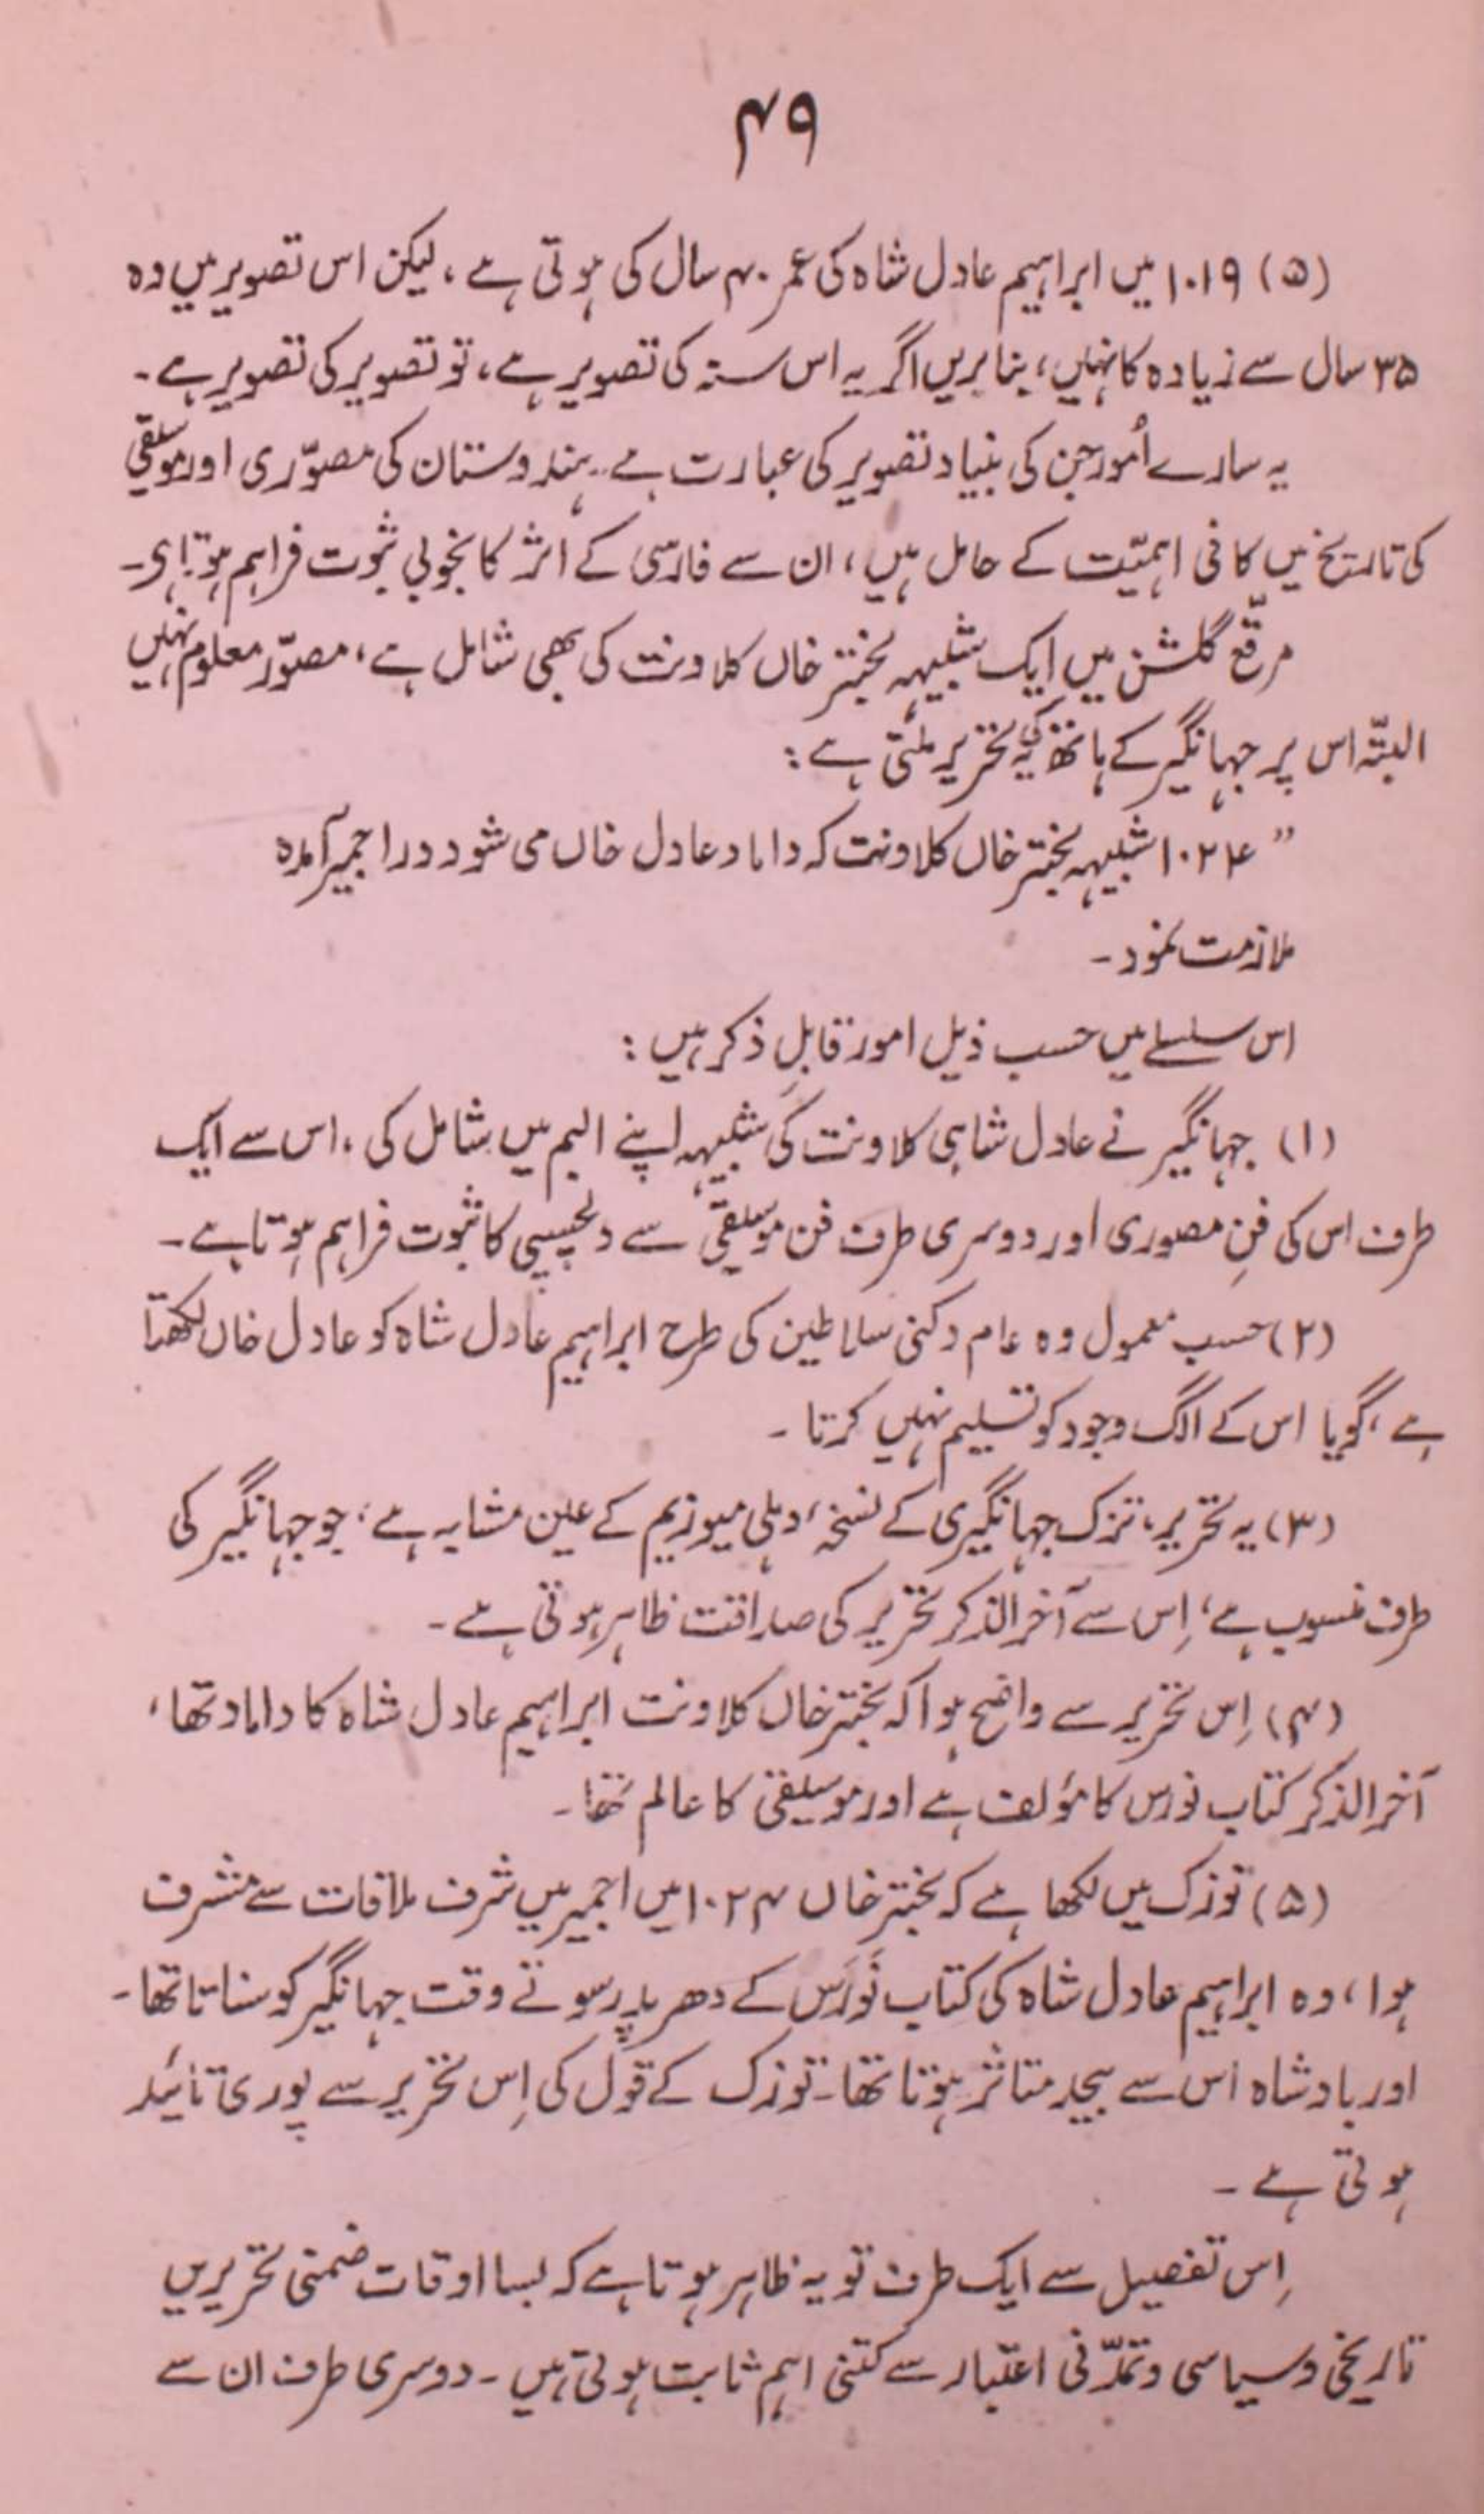 ۴۹
(۵) ۱۰۱۹ میں ابراہیم عادل شاہ کی عمر ۴۰ سال کی ہوتی ہے، لیکن اس تصویر میں وہ
۳۵ سال سے زیادہ کا نہیں، بنابریں اگر یہ اس سنہ کی تصویر ہے، تو تصویر کی تصویر ہے۔
یہ سارے اُمور جن کی بنیاد تصویر کی عبارت ہے۔ ہندوستان کی مصوّری اور موسیقی
کی تاریخ میں کافی اہمیّت کے حامل ہیں، ان سے فارسی کے اثر کا بخوبی ثبوت فراہم ہوتا ہی۔
مرقّع گلشن میں ایک شبیہہ بختر خاں کلاونت کی بھی شامل ہے، مصوّر معلوم نہیں
البتّہ اس پر جہانگیر کے ہاتھ کی یہ تحریر ملتی ہے :
" ۱۰۲۴ شبیہہ بختر خاں کلاونت کہ داماد عادل خاں می شود در اجمیر آمدہ
ملازمت نمود۔
اس سلسلے میں حسب ذیل امور قابلِ ذکر ہیں :
(۱) جہانگیر نے عادل شاہی کلاونت کی شبیہہ اپنے البم میں شامل کی، اس سے ایک
طرف اس کی فنِ مصوری اور دوسری طرف فن موسیقی سے دلچسپی کا ثبوت فراہم ہوتا ہے۔
(۲) حسب معمول وہ عام دکنی سلاطین کی طرح ابراہیم عادل شاہ کو عادل خاں لکھتا
ہے، گویا اس کے الگ وجود کو تسلیم نہیں کرتا۔
(۳) یہ تحریر، تزک جہانگیری کے نسخۂ دہلی میوزیم کے عین مشابہ ہے، جو جہانگیر کی
طرف منسوب ہے، اِس سے آخر الذکر تحریر کی صداقت ظاہر ہوتی ہے۔
(۴) اِس تحریر سے واضح ہوا کہ بختر خاں کلاونت ابراہیم عادل شاہ کا داماد تھا،
آخر الذکر کتاب نورس کا مؤلف ہے اور موسیقی کا عالم تھا۔
(۵) توزک میں لکھا ہے کہ بختر خاں ۱۰۲۴ میں اجمیر میں شرف ملاقات سے مشرف
ہوا، وہ ابراہیم عادل شاہ کی کتاب نَورَس کے دھرپد سوتے وقت جہانگیر کو سناتا تھا۔
اور بادشاہ اس سے بیحد متاثر ہوتا تھا۔ توزک کے قول کی اِس تحریر سے پوری تائید
ہوتی ہے۔
اِس تفصیل سے ایک طرف تو یہ ظاہر ہوتا ہے کہ بسا اوقات ضمنی تحریریں
تاریخی و سیاسی و تمدّنی اعتبار سے کتنی اہم ثابت ہوتی ہیں۔ دوسری طرف ان سے